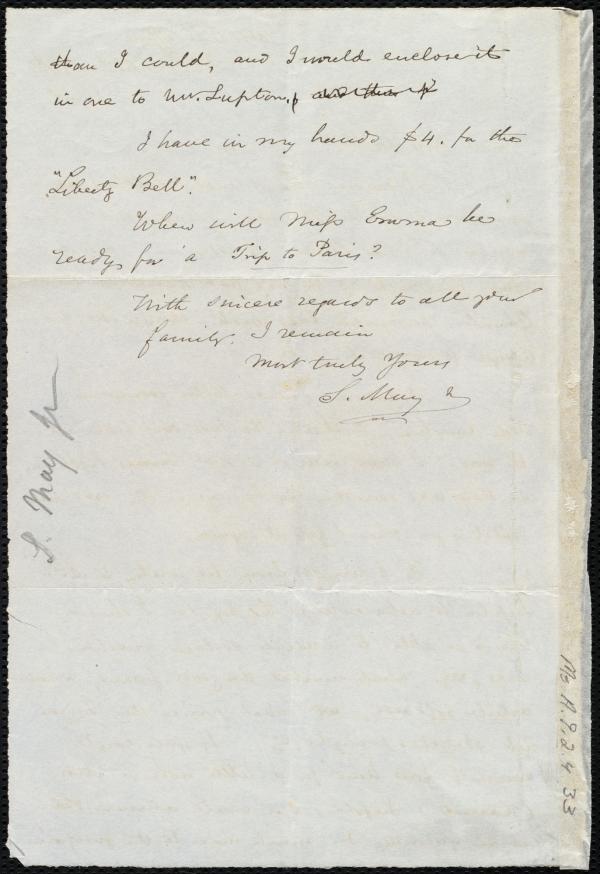 than I could, and I would enclose it
in one to Mr. Lupton.
I have in my hands $4. for the
"Liberty Bell".
When will Miss Emma be
ready, for a Trip to Paris?
With sincere regards to all your
family. I remain
Most truly Yours
S. May Jr
S. May Jr
Ms. A.9.2.4.33